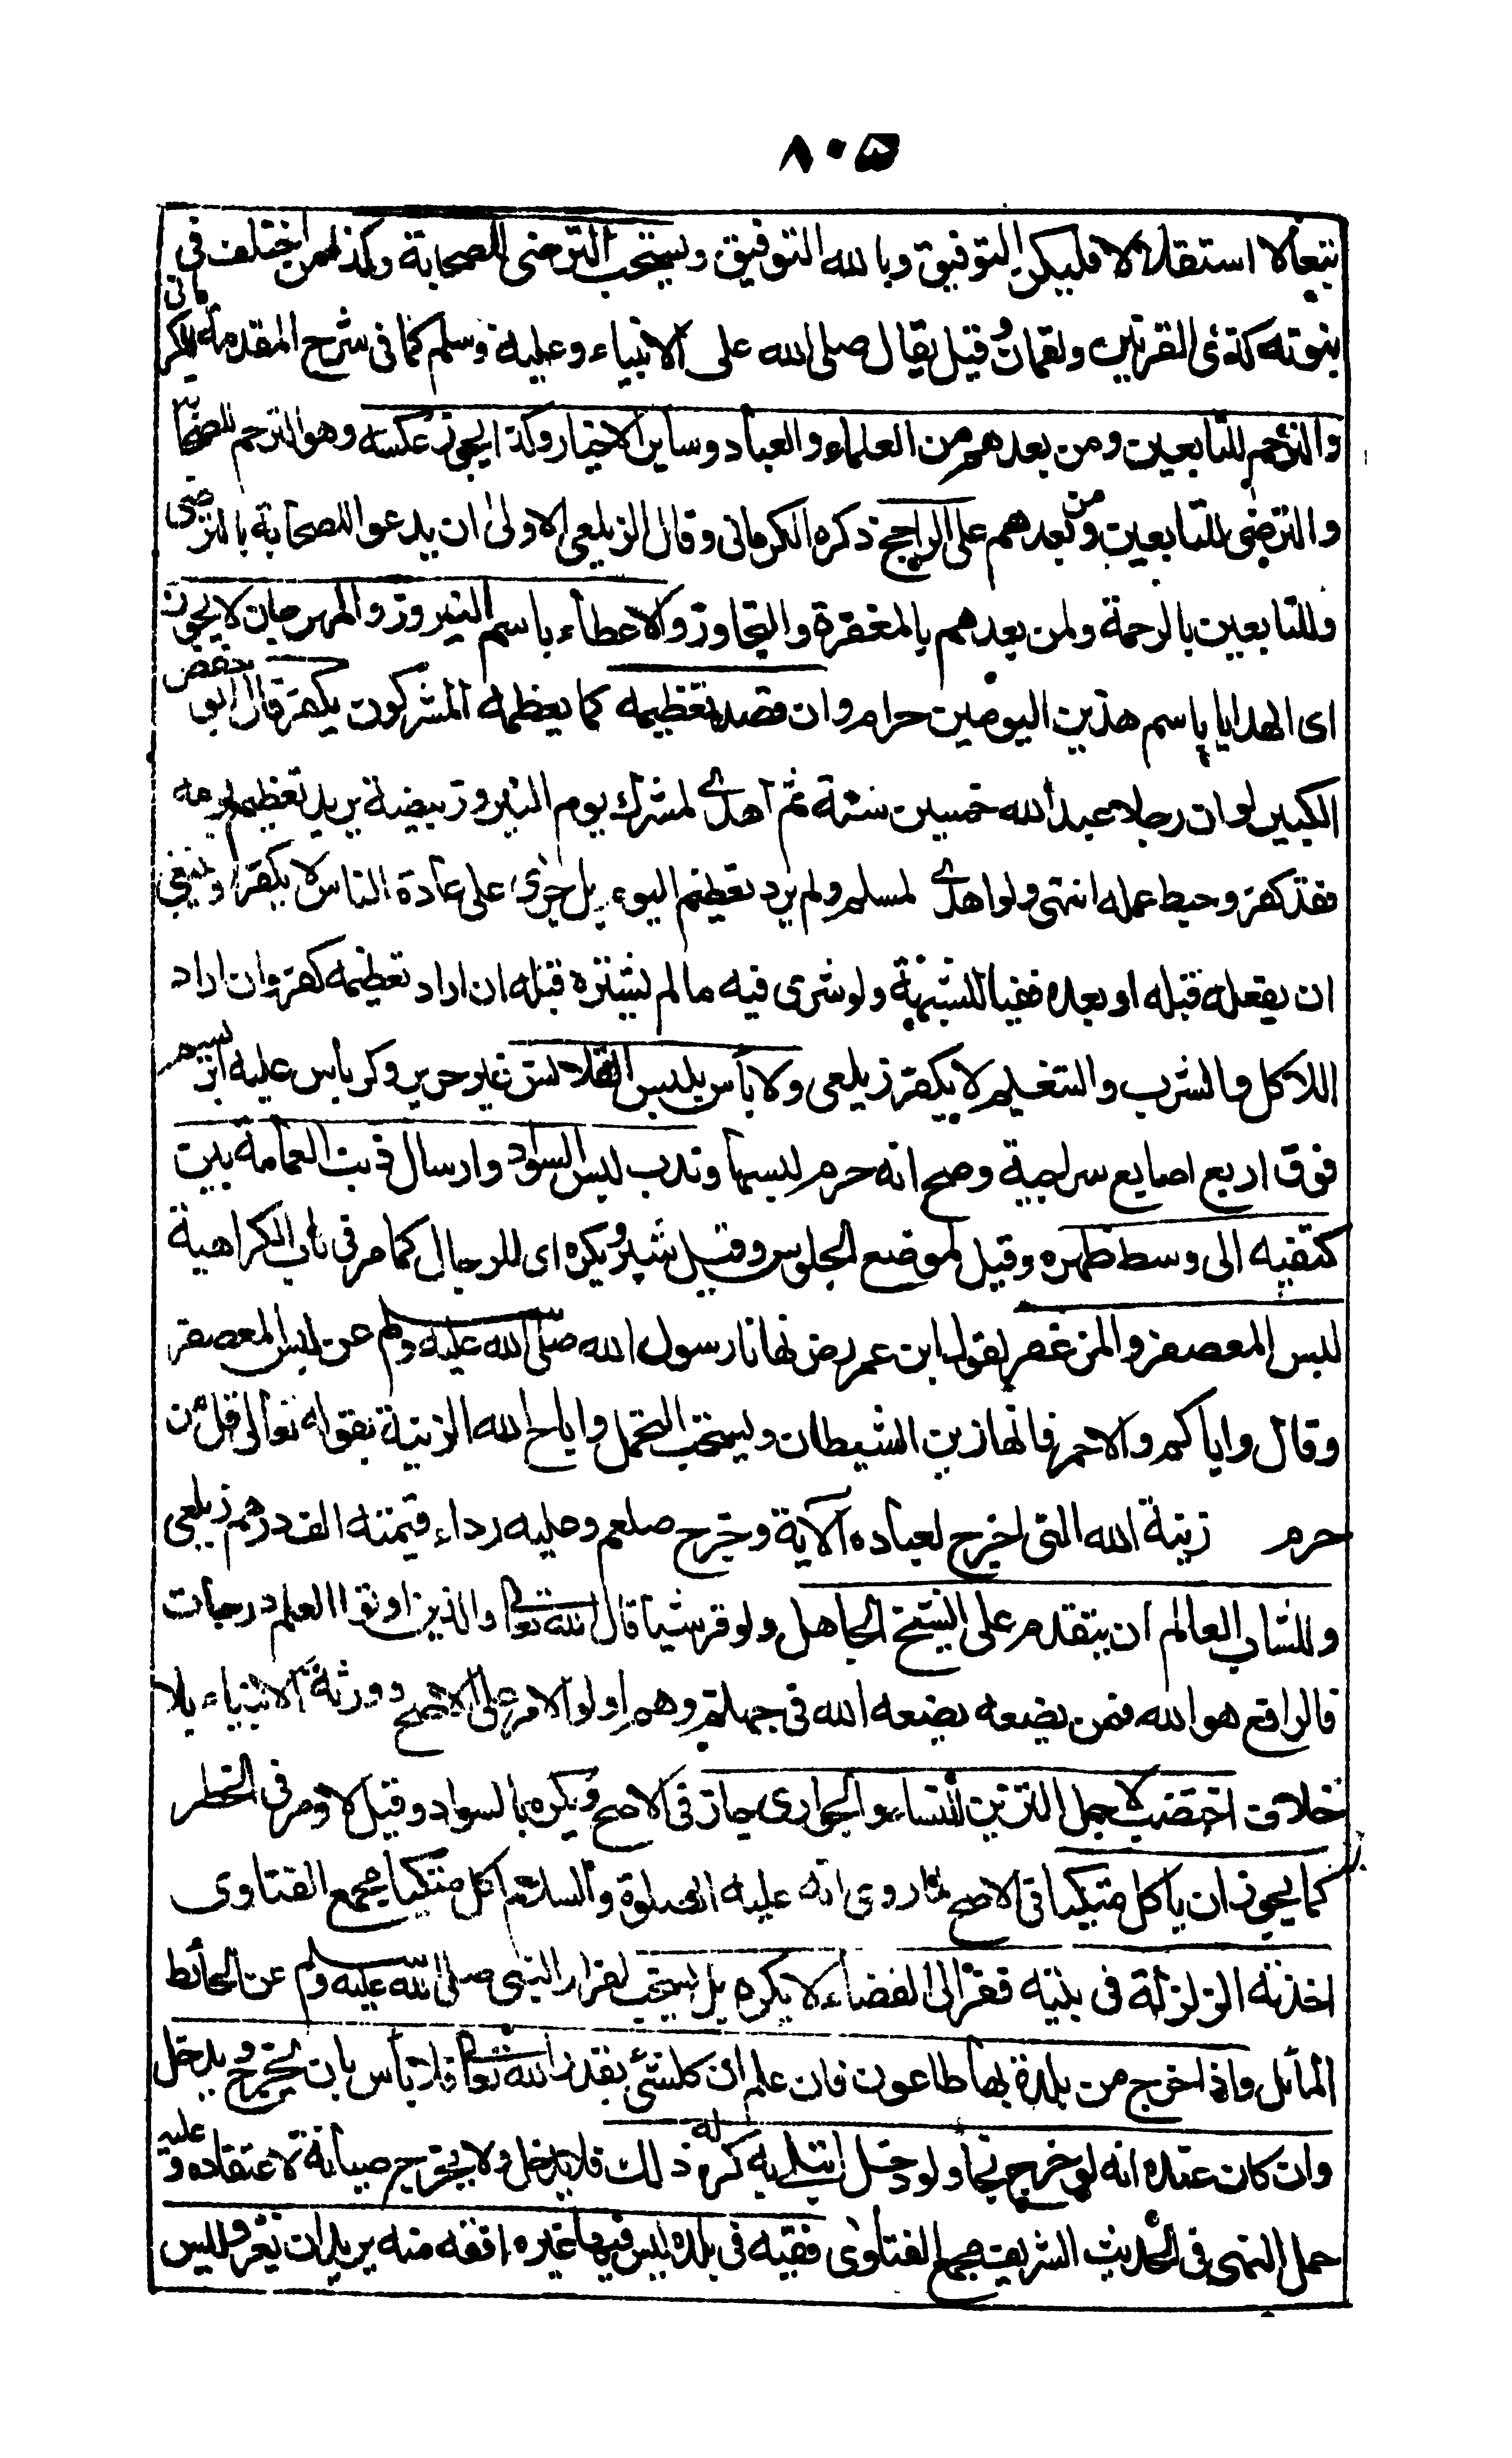 ٨٠٥
تبعا لا استقلالا فليكن التوفيق وبالله التوفيق ويستحب الترضى للصحابة وكذا من اختلف فى
نبوته كذى القرنين ولقمان وقيل يقال صلى الله على الانبياء وعليه وسلم كما فى شرح المقدمة للكرمانى
والترحم للتابعين ومن بعدهم من العلماء والعباد وساير الاخيار وكذا يجوز عكسه وهو الترحم للصحابة
والترضى للتابعين ومن بعدهم على الراجح ذكره الكرمانى وقال الزيلعى الاولى ان يدعو للصحابة بالترضى
وللتابعين بالرحمة ولمن بعدهم بالمغفرة والتجاوز والاعطاء باسم النيروز والمهرجان لا يجوز
اى الهدايا باسم هذين اليومين حرام وان قصد تعظيمه كما يعظمه المشركون يكفر قال ابو حفص
الكبير لو ان رجلا عبد الله خمسين سنة ثم اهدى لمشرك يوم النيروز بيضة يريد تعظيم يومه
فقد كفر وحبط عمله انتهى ولو اهدى لمسلم ولم يرد تعظيم اليوم بل جرى على عادة الناس لا يكفر وينبغى
ان يفعله قبله او بعده نفيا للشبهة ولو شرى فيه ما لم يشتره قبله ان اراد تعظيمه كفر وان اراد
اللاكل والشرب والتنعيم لا يكفر زيلعى ولا بأس بلبس القلانس غير حرير وكرباس عليه ابريسم
فوق اربع اصابع سراجية وصح انه حرم لبسها وندب لبس السواد وارسال ذنب العمامة بين
كتفيه الى وسط ظهره وقيل لموضع الجلوس وقيل شبر ويكره اى للرجال كما مر فى باب الكراهية
لبس المعصفر والمزعفر لقول ابن عمر رض نهانا رسول الله صلى الله عليه وسلم عن لبس المعصفر
وقال واياكم والاحمر فانها زين الشيطان ويستحب التجمل واباح الله الزينة بقوله تعالى قل من
حرم زينة الله التى اخرج لعباده الآية وخرج صلعم وعليه رداء قيمته الف درهم زيلعى
وللشاب العالم ان يتقدم على الشيخ الجاهل ولو قرشيا قال الله تعالى والذين اوتوا العلم درجات
فالرافع هو الله فمن يضعه يضعه الله فى جهنم وهم اولو الامر على الاصح وورثة الانبياء بلا
خلاف اختضب لاجل التزين للنساء والجوارى جاز فى الاصح ويكره بالسواد وقيل لا ومر فى الحظر
كما يجوز ان يأكل متكيا فى الاصح لما روى انه عليه الصلوة والسلام اكل متكيا مجمع الفتاوى
اخذته الزلزلة فى بيته ففر الى الفضاء لا يكره بل يستحب لفرار النبى صلى الله عليه وسلم عن الحائط
المائل واذا خرج من بلدة بها طاعون فان علم ان كل شئ بقدر الله تعالى فلا بأس بان يخرج ويدخل
وان كان عنده انه لو خرج نجا ولو دخل ابتلى به كره له ذلك فلا يدخل ولا يخرج صيانة لاعتقاده وعليه
حمل النهى فى الحديث الشريف مجمع الفتاوى فقيه فى بلدة ليس فيها غيره افقه منه يريد ان يغزو ليس